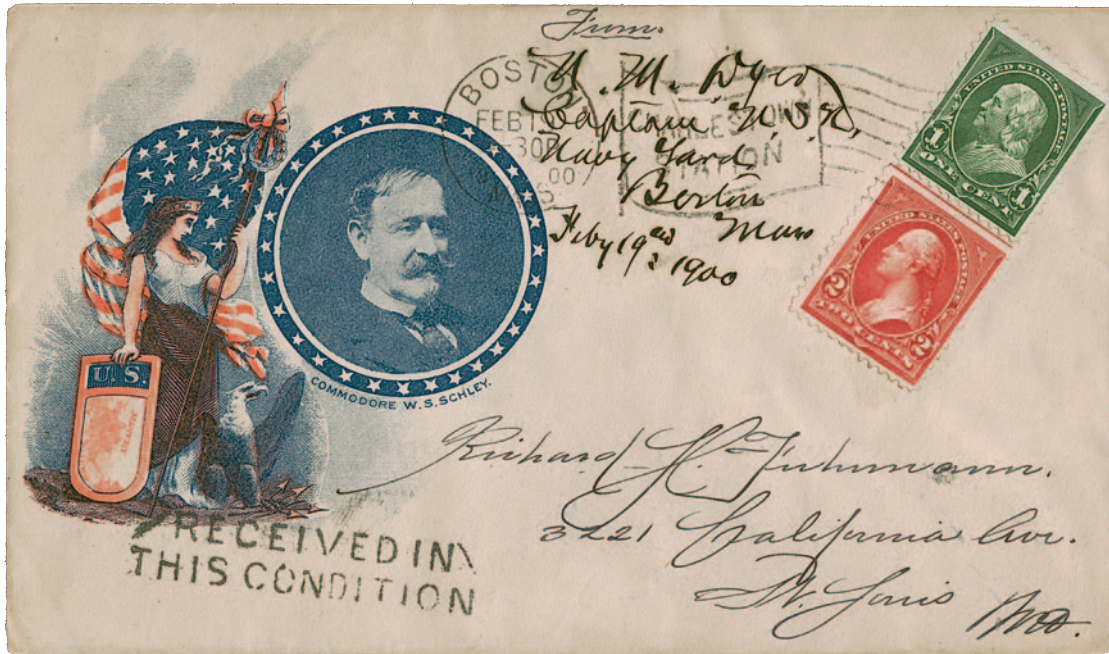 From.
N. M. Dyer
Captain U.S.N,
Navy Yard,
Boston
Mass
Feby 19th, 1900
BOSTON
FEB 1
-30
00
STATION
UNITED STATES POSTAGE
1 ONE CENT 1
UNITED STATES POSTAGE
2 TWO CENTS 2
U. S.
COMMODORE W. S. SCHLEY.
Richard H. Fuhrmann.
3221 California Ave.
St. Louis Mo.
RECEIVED IN
THIS CONDITION